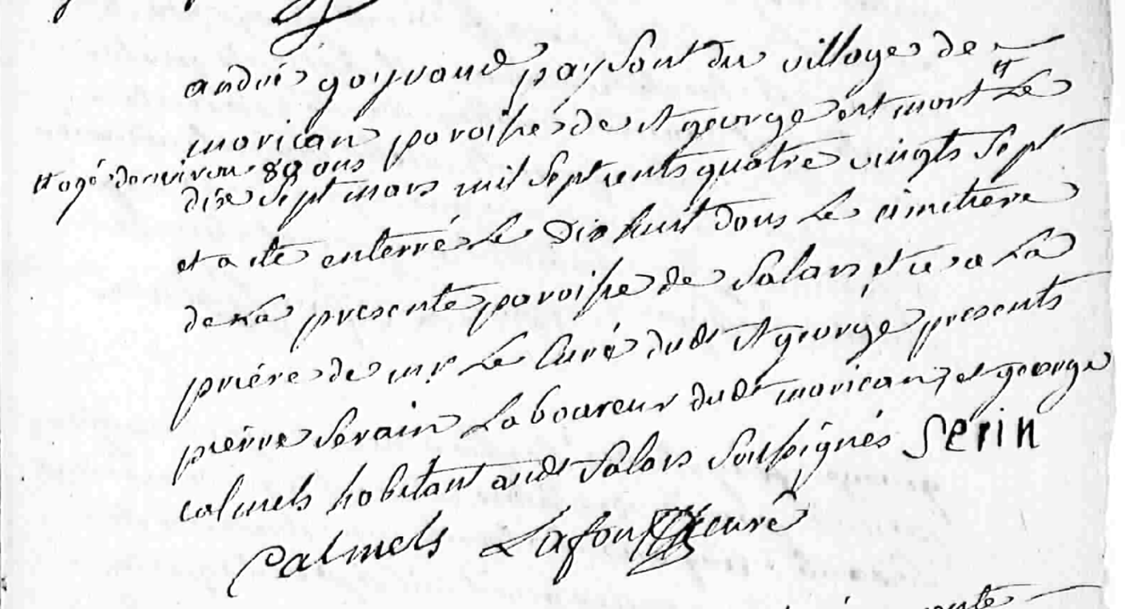 andré goyraud paysant du village de
morican paroisse de st george est mort # Le
# agé denviron 80 ans
dixe sept mars mil sept cents quatre vingts sept
et a ete enterré Le dix huit dans Le cimitiere
de La presente paroisse de Salars et ce a La
priére de mr Le Curé dudt st george presents
pierre Serain Laboureur dudt morican, et george
calmels habitant audt Salars soussignés Serin
Calmels Lafon curé